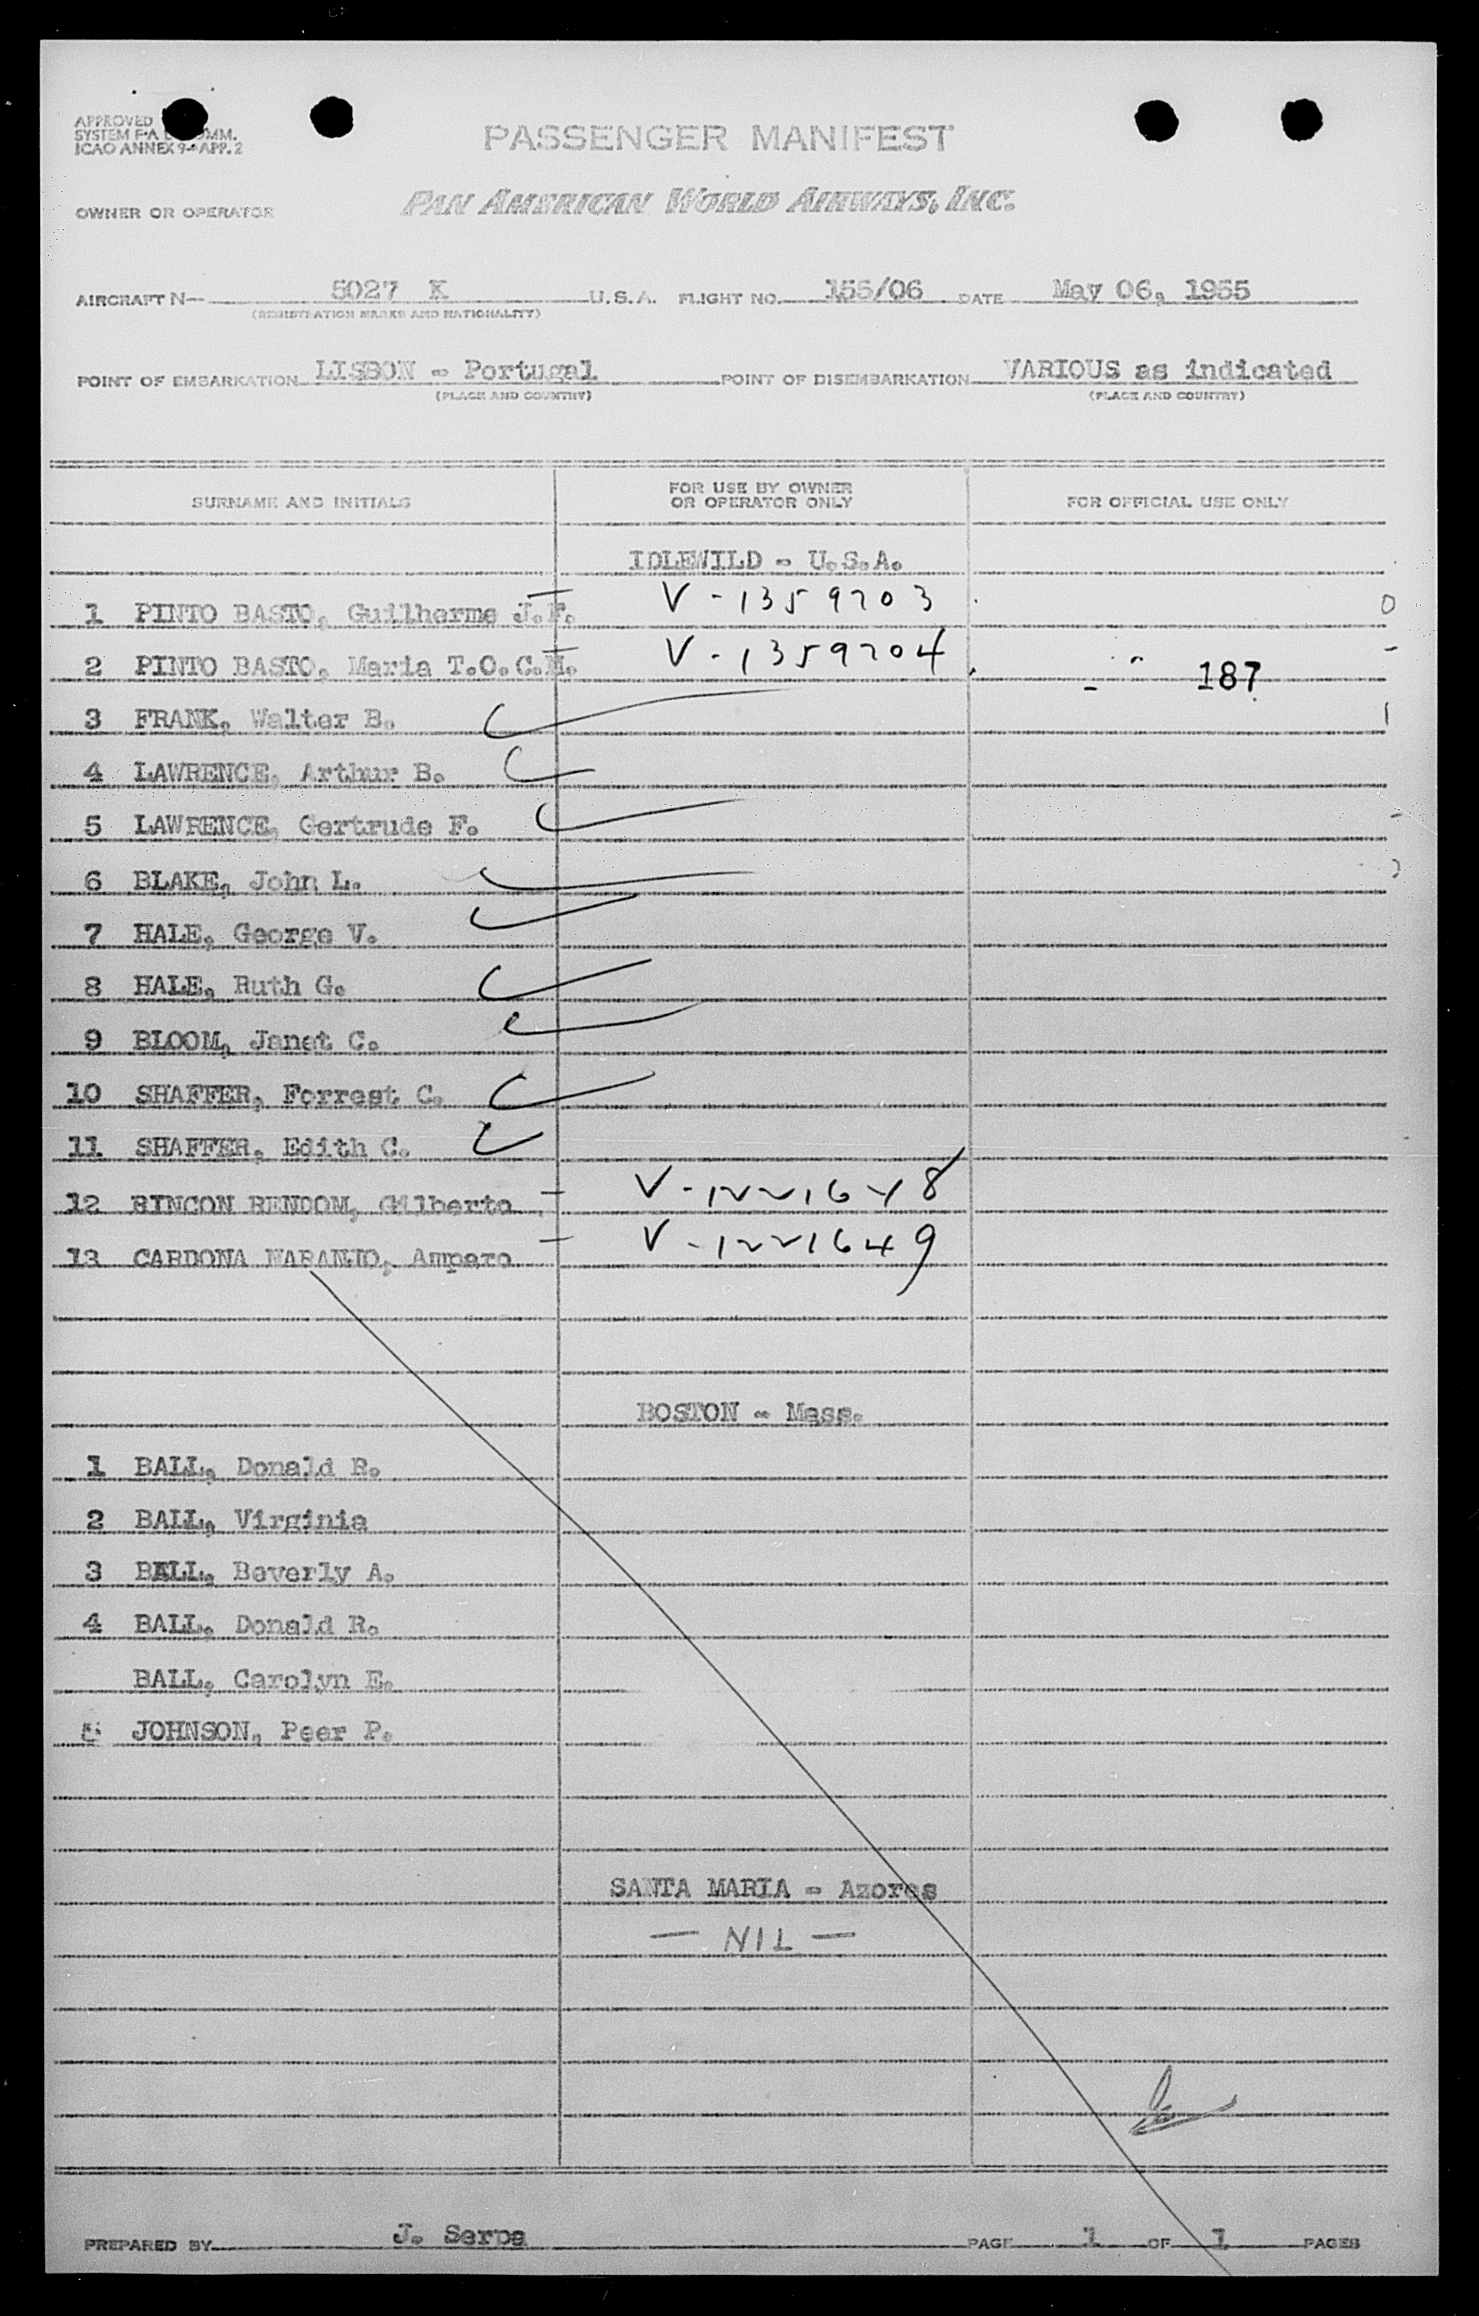 APPROVED
SYSTEM F-A
ICAO ANNEX 9-APP. 2
PASSENGER MANIFEST
OWNER OR OPERATOR PAN AMERICAN WORLD AIRWAYS, INC.
AIRCRAFT N- 5027 K U.S.A. FLIGHT NO. 155/06 DATE May 06, 1955
(REGISTRATION MARKS AND NATIONALITY)
POINT OF EMBARKATION LISBON - Portugal POINT OF DISEMBARKATION VARIOUS as indicated
(PLACE AND COUNTRY) (PLACE AND COUNTRY)
SURNAME AND INITIALS FOR USE BY OWNER OR OPERATOR ONLY FOR OFFICIAL USE ONLY
IDLEWILD - U.S.A.
1 PINTO BASTO, Guilherme J.F. V-1359703 0
2 PINTO BASTO, Maria T.O.C.M. V-1359704 187
3 FRANK, Walter B.
4 LAWRENCE, Arthur B.
5 LAWRENCE, Gertrude F.
6 BLAKE, John L.
7 HALE, George V.
8 HALE, Ruth G.
9 BLOOM, Janet C.
10 SHAFFER, Forrest C.
11 SHAFFER, Edith C.
12 RINCON RENDOM, Gilberto V-1221648
13 CARDONA NARANJO, Amparo V-1221649
BOSTON - Mass.
1 BALL, Donald R.
2 BALL, Virginia
3 BALL, Beverly A.
4 BALL, Donald R.
BALL, Carolyn E.
5 JOHNSON, Peer P.
SANTA MARIA - Azores
- NIL -
PREPARED BY J. Serpa PAGE 1 OF 1 PAGES